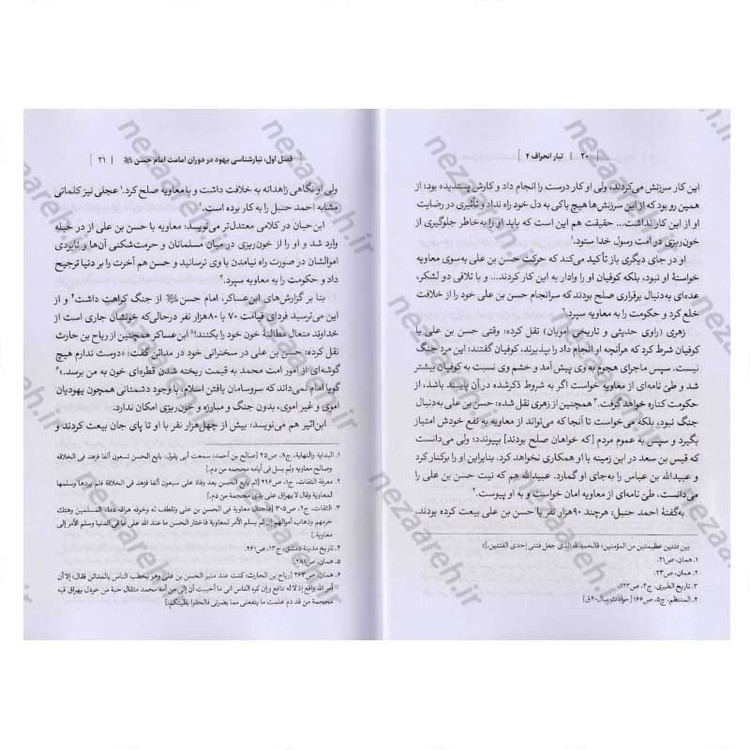 ۲۰ | تبار انحراف ۴
این کار سرزنش می‌کردند، ولی او کار درست را انجام داد و کارش پسندیده بود؛ از
همین رو بود که از این سرزنش‌ها هیچ باکی به دل خود راه نداد و تأثیری در رضایت
او از این کار نداشت... حقیقت هم این است که باید او را به‌خاطر جلوگیری از
خون‌ریزی در امت رسول خدا ستود.
او در جای دیگری باز تأکید می‌کند که حرکت حسن بن علی به‌سوی معاویه
خواستهٔ او نبود، بلکه کوفیان او را وادار به این کار کردند... و با تلاقی دو لشکر،
عده‌ای به‌دنبال برقراری صلح بودند که سرانجام حسن بن علی خود را از خلافت
خلع کرد و حکومت را به معاویه سپرد.
زهری (راوی حدیثی و تاریخی امویان) نقل کرده: وقتی حسن بن علی با
کوفیان شرط کرد که هرآنچه او انجام داد را بپذیرند، کوفیان گفتند: این مرد جنگ
نیست. سپس ماجرای هجوم به وی پیش آمد و خشم وی نسبت به کوفیان بیشتر
شد و طی نامه‌ای از معاویه خواست اگر به شروط ذکرشده در آن پایبند باشد، از
حکومت کناره خواهد گرفت. همچنین از زهری نقل شده: حسن بن علی به‌دنبال
جنگ نبود، بلکه می‌خواست تا آنجا که می‌تواند از معاویه به نفع خودش امتیاز
بگیرد و سپس به عموم مردم [که خواهان صلح بودند] بپیوندد؛ ولی می‌دانست
که قیس بن سعد در این زمینه با او همکاری نخواهد کرد. بنابراین او را برکنار کرد
و عبیدالله بن عباس را به‌جای او گمارد. عبیدالله هم که نیت حسن بن علی را
می‌دانست، طی نامه‌ای از معاویه امان خواست و به او پیوست.
به‌گفتهٔ احمد حنبل: هرچند ۹۰هزار نفر با حسن بن علی بیعت کرده بودند،
بین فئتین عظیمتین من المؤمنین؛ فالحمد لله الذی جعل فئتی إحدی الفئتین.]
۱. همان، ص۲۱.
۲. همان، ص۲۳.
۳. تاریخ الطبری، ج۴، ص۱۲۳.
۴. المنتظم، ج۵، ص۱۶۶ [حوادث سال ۴۰ق]
فصل اول: تبارشناسی یهود در دوران امامت امام حسن | ۲۱
ولی او نگاهی زاهدانه به خلافت داشت و با معاویه صلح کرد. عجلی نیز کلماتی
مشابه احمد حنبل را به کار برده است.
ابن‌حبان در کلامی معتدل‌تر می‌نویسد: معاویه با حسن بن علی از در حیله
وارد شد و او را از خون‌ریزی در میان مسلمانان و حرمت‌شکنی آن‌ها و نابودی
اموالشان در صورت راه نیامدن با وی ترسانید و حسن هم آخرت را بر دنیا ترجیح
داد و حکومت را به معاویه سپرد.
بنا بر گزارش‌های ابن‌عساکر، امام حسن از جنگ کراهت داشت و از
این می‌ترسید فردای قیامت ۷۰ یا ۸۰هزار نفر درحالی‌که خونشان جاری است از
خداوند متعال مطالبهٔ خون خود را بکنند! ابن‌عساکر همچنین از ریاح بن حارث
نقل کرده: حسن بن علی در سخنرانی خود در مدائن گفت: «دوست ندارم هیچ
گوشه‌ای از امور امت محمد به قیمت ریخته شدن قطره‌ای خون به من برسد.»
گویا امام نمی‌داند که سروسامان یافتن اسلام، با وجود دشمنانی همچون یهودیان
اموی و غیر اموی، بدون جنگ و مبارزه و خون‌ریزی امکان ندارد.
ابن‌اثیر هم می‌نویسد: بیش از چهل‌هزار نفر با او تا پای جان بیعت کردند و
۱. البدایة والنهایة، ج۸، ص۴۵ [صالح بن أحمد: سمعت أبی یقول: بایع الحسن تسعون ألفا فزهد فی الخلافة
وصالح معاویة ولم یسل فی أیامه محجمة من دم.]
۲. معرفة الثقات، ج۱، ص۲۹۶ [ثم بایع الحسن بعد وفاة علی سبعون ألفا فزهد فی الخلافة فلم یردها وسلمها
لمعاویة وقال لا یهراق علی یدی محجمة من دم.]
۳. الثقات، ج۲، ص۳۰۵ [فاحتال معاویة فی الحسن بن علی وتلطف له وخوفه هراقه دماء المسلمین وهتك
حرمهم وذهاب أموالهم إن لم یسلم الأمر لمعاویة فاختار الحسن ما عند الله علی ما فی الدنیا وسلم الأمر إلی
معاویة.]
۴. تاریخ مدینة دمشق، ج۱۳، ص۲۶۱.
۵. همان، ص۲۸۱.
۶. همان، ص۲۶۳ [ریاح بن الحارث: کنت عند منبر الحسن بن علی وهو یخطب الناس بالمدائن فقال: إلا أن
أمر الله واقع إذ لا له دافع وإن کره الناس انی ما أحببت أن إلی من أمه محمد مثقال حبة من خردل یهراق فیه
محجمة من دم قد علمت ما ینفعنی مما یضرنی فالحقوا بطیتکم.]
nezaareh.ir